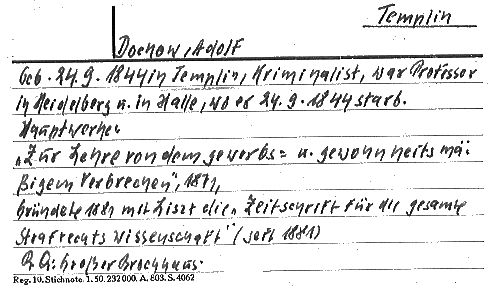 Templin
Dochow, Adolf
Geb. 24.9.1844 in Templin, Kriminalist, war Professor
in Heidelberg u. in Halle, wo er 24.9.1844 starb.
Hauptwerke:
"Zur Lehre von dem gewerbs= u. gewohnheitsmä-
ßigem Verbrechen", 1871,
gründete 1881 mit Liszt die "Zeitschrift für die gesamte
Strafrechtswissenschaft" (seit 1881)
Q: Großer Brockhaus.
Reg. 10. Stichnote. 1. 50. 232000. A. 803. S. 4062